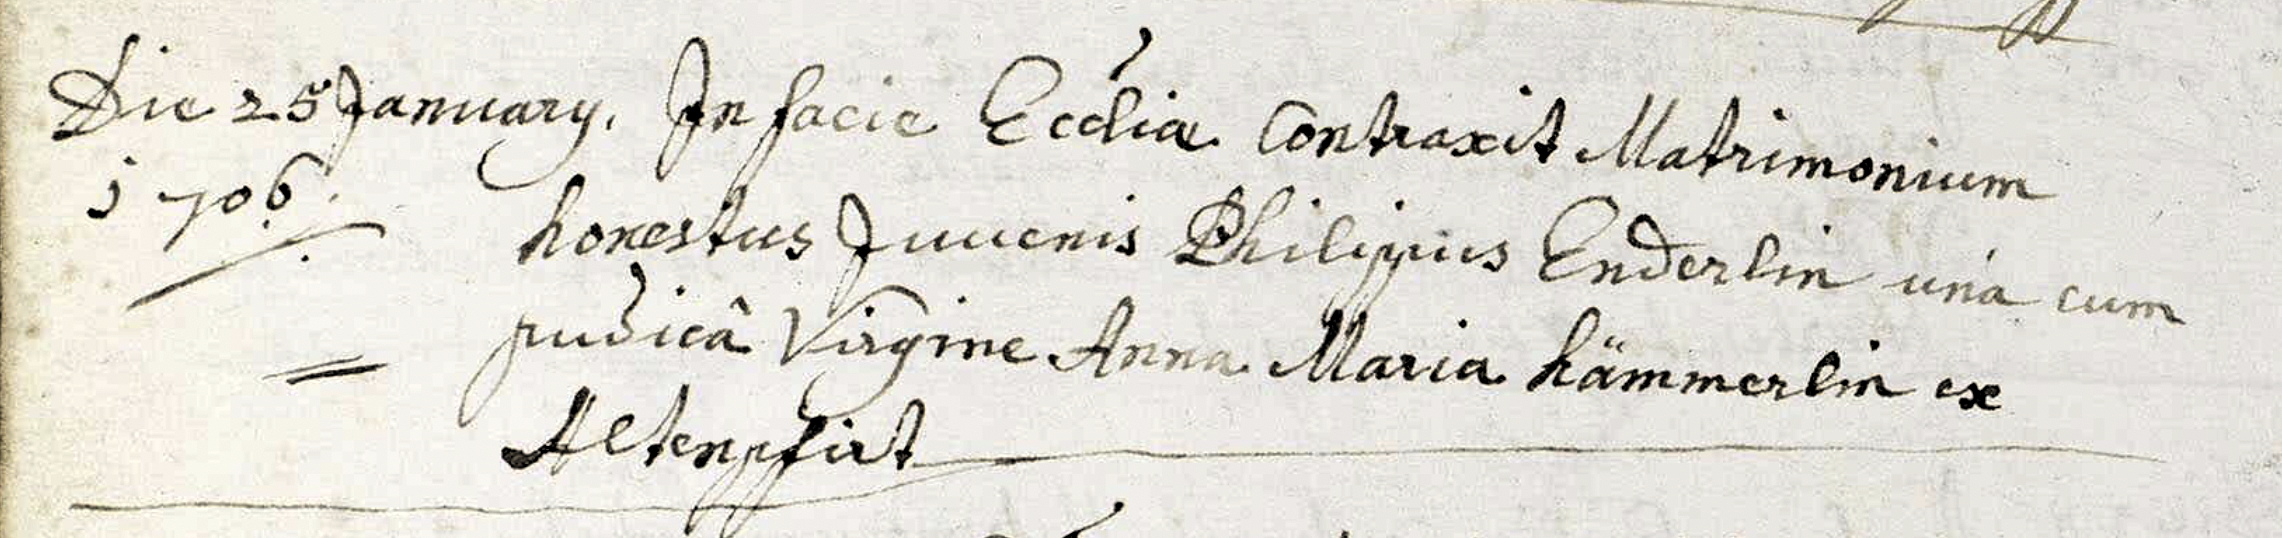 Die 25 January. In facie Eccliæ Contraxit Matrimonium
1706. honestus Juuenis Philippus Enderlin unà cum
pudicâ Virgine Anna Maria hämmerlin ex
Altenpfirt